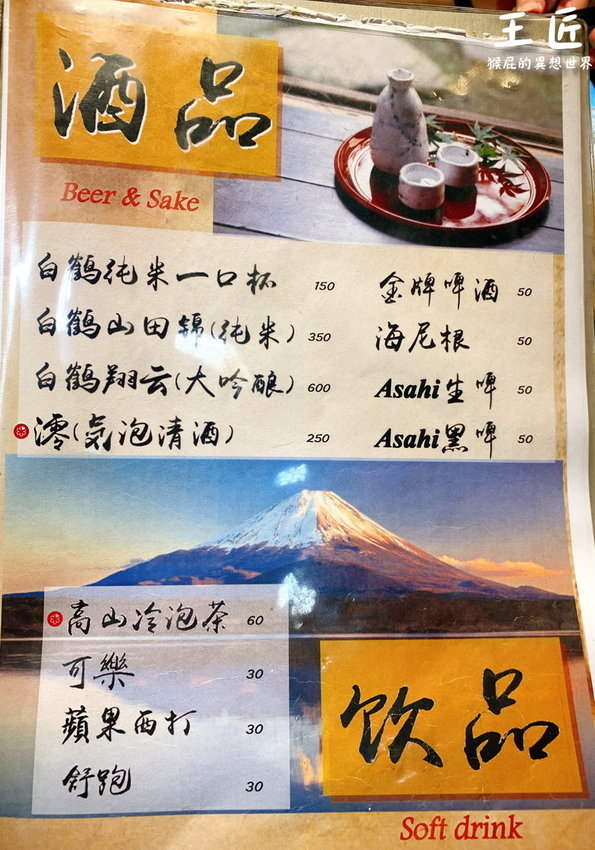 王匠
猴屁的異想世界
酒品
Beer & Sake
白鶴純米一口杯 150
白鶴山田錦(純米) 350
白鶴翔云(大吟釀) 600
澪(気泡清酒) 250
金牌啤酒 50
海尼根 50
Asahi生啤 50
Asahi黑啤 50
高山冷泡茶 60
可樂 30
蘋果西打 30
舒跑 30
飲品
Soft drink